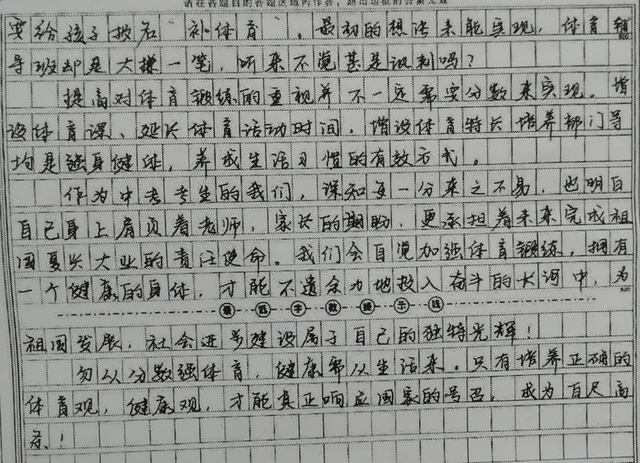 请在各题目的答题区域内作答，超出边框的答案无效
要给孩子报名“补体育”。最初的想法未能实现，体育辅
导班却是大撰一笔，听来不觉甚是讽刺吗？
提高对体育锻练的重视并不一定需要分数来实现。增
设体育课、延长体育活动时间，增设体育特长培养部门等
均是强身健体，养成生活习惯的有效方式。
作为中考考生的我们，深知每一分来之不易，也明白
自己身上肩负着老师，家长的期盼，更承担着未来完成祖
国复兴大业的责任使命。我们会自觉加强体育锻练，拥有
一个健康的身体，才能不遗余力地投入奋斗的大河中，为
最低字数提示线
祖国发展，社会进步建设属于自己的独特光辉！
勿以分数强体育，健康需从生活来。只有培养正确的
体育观，健康观，才能真正响应国家的号召，成为百尺高
！